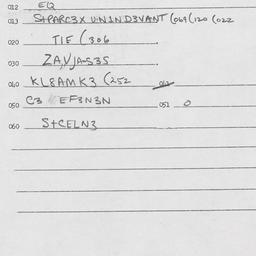 012 EQ
013 S+PARC3X U·N1ND3VANT (069(120 (022
020 TIF (306
030 ZA,VJA-S3S
040 KL8AMK3 (252 042
050 C3 EF3N3N 051 0
060 S+CELN3